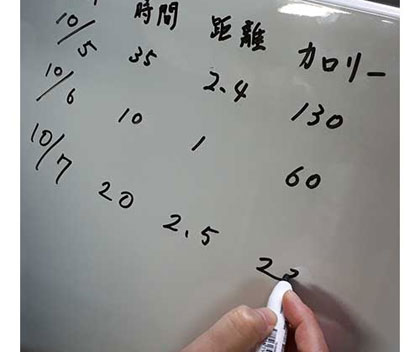 時間 距離 カロリー
10/5 35 2.4 130
10/6 10 1 60
10/7 20 2.5 22